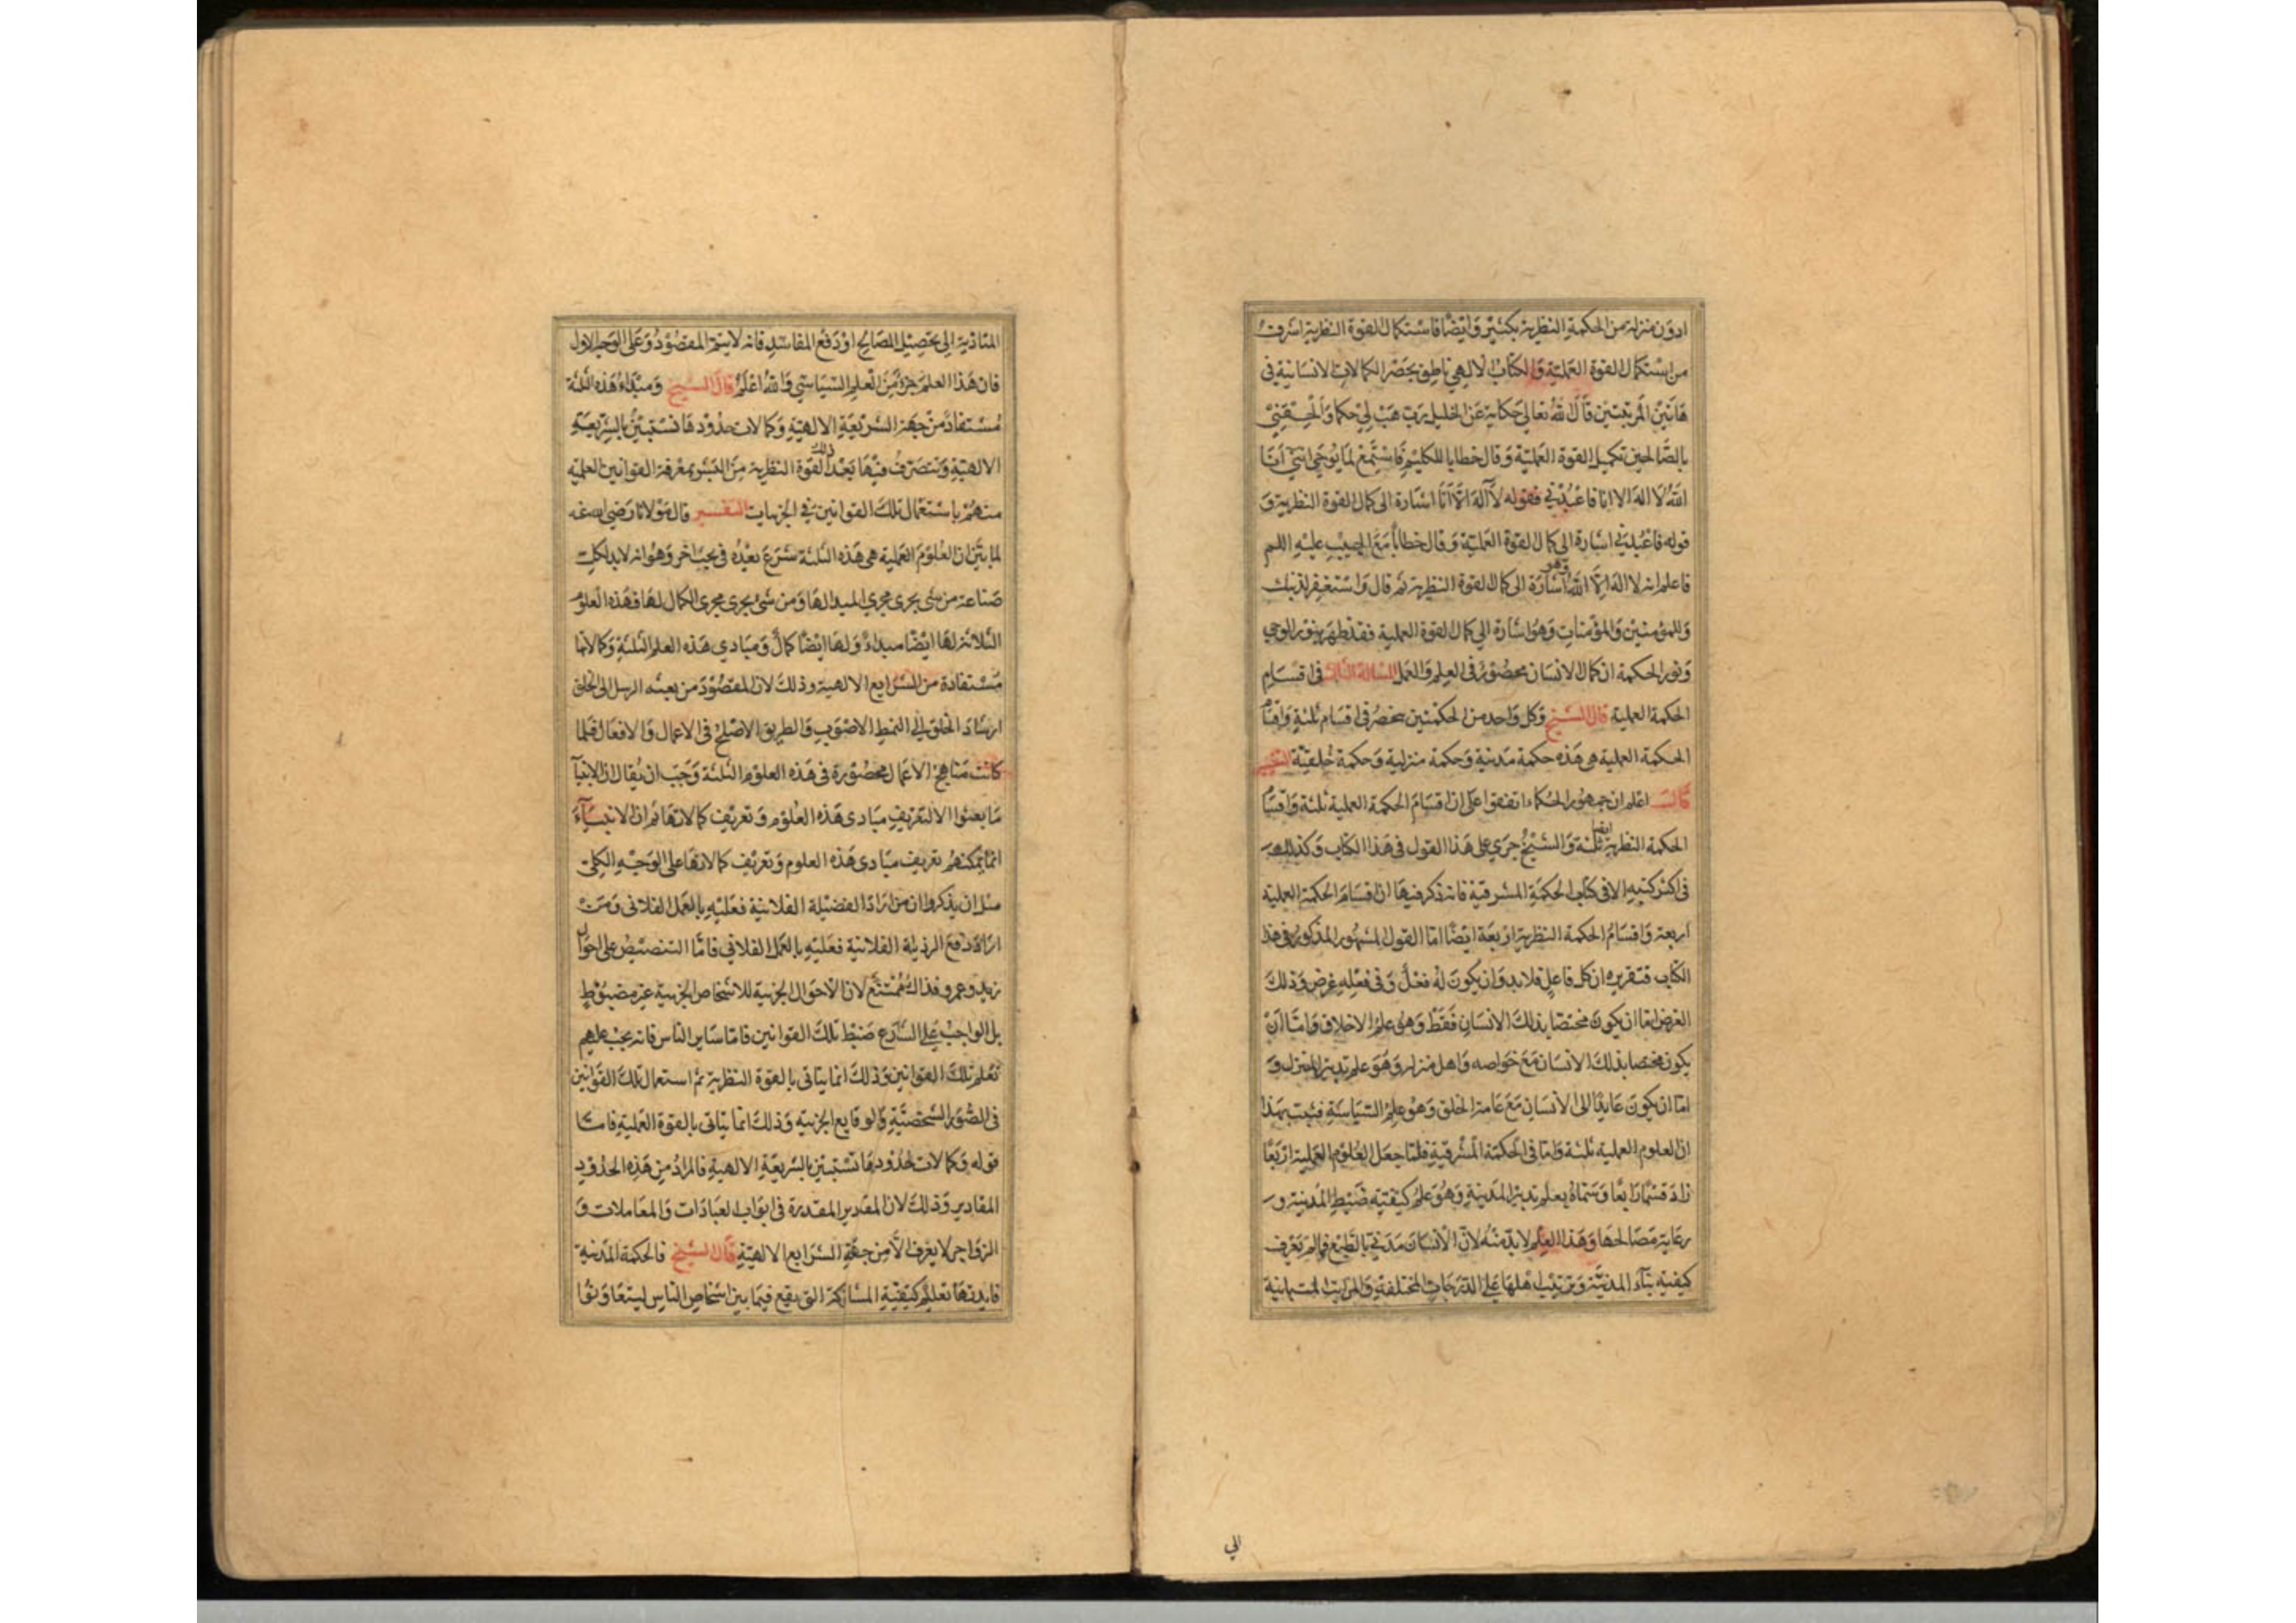 ادون منزلة من الحكمة النظرية بكثير وايضا فاستكمال القوة النظرية اشرف
من استكمال القوة العملية والكتاب الالهي ناطق بحصر الكمالات الانسانية في
هاتين المرتبتين قال الله تعالى حكاية عن الخليل رب هب لي حكما والحقني
بالصالحين تكميل القوة العملية وقال خطابا للكليم فاستمع لما يوحى انني انا
الله لا اله الا انا فاعبدني فقوله لا اله الا انا اشارة الى كمال القوة النظرية و
قوله فاعبدني اشارة الى كمال القوة العملية وقال خطابا مع الحبيب عليه
فاعلم انه لا اله الا الله وهو اشارة الى كمال القوة النظرية ثم قال واستغفر لذنبك
وللمؤمنين والمؤمنات وهو اشارة الى كمال القوة العملية فقد ظهر بنور الوحي
ونور الحكمة ان كمال الانسان محصور في العلم والعمل المسالة الثانية في اقسام
الحكمة العملية قال الشيخ وكل واحد من الحكمتين منحصر في اقسام ثلثة واقسام
الحكمة العملية هي هذه حكمة مدنية وحكمة منزلية وحكمة خلقية التفسير
قال اعلم ان جمهور الحكماء اتفقوا على ان اقسام الحكمة العملية ثلثة واقسام
الحكمة النظرية ايضا ثلثة والشيخ جرى على هذا القول في هذا الكتاب وكذلك
في اكثر كتبه الا في كتاب الحكمة المشرقية فانه ذكر فيها ان اقسام الحكمة العملية
اربعة واقسام الحكمة النظرية اربعة ايضا اما القول المشهور المذكور في هذا
الكتاب فتقريره ان كل فاعل فلا بد وان يكون له فعل وفي فعله غرض وذلك
الغرض اما ان يكون مختصا بذلك الانسان فقط وهو علم الاخلاق واما ان
يكون مختصا بذلك الانسان مع خواصه واهل منزله وهو علم تدبير المنزل و
اما ان يكون عايدا الى الانسان مع عامة الخلق وهو علم السياسة فثبت بهذا
ان العلوم العملية ثلثة واما في الحكمة المشرقية فلما جعل العلوم العملية اربعا
زاد قسما رابعا وسماه بعلم تدبير المدينة وهو علم كيفية ضبط المدينة و
رعاية مصالحها وهذا العلم لابد منه لان الانسان مدني بالطبع فما لم يعرف
كيفية بناء المدينة وترتيب اهلها على الدرجات المختلفة والمراتب
الي
المتادية الى تحصيل المصالح او دفع المفاسد فانه لا يتم المقصود وعلى الوجه الاول
فان هذا العلم جزؤ من العلم السياسي والله اعلم قال الشيخ ومبداء هذه الثلثة
مستفاد من جهة الشريعة الالهية وكمالات حدودها تستبين بالشريعة
الالهية وتتصرف فيها بعد ذلك القوة النظرية من البشر بمعرفة القوانين العملية
منهم باستعمال تلك القوانين في الجزئيات التفسير قال مولانا رضي الله عنه
لما بين ان العلوم العملية هي هذه الثلثة شرع بعده في بحث اخر وهو انه لابد لكل
صناعة من شئ يجرى مجرى المبدا لها ومن شئ يجرى مجرى الكمال لها فهذه العلوم
الثلاثة لها ايضا مبداء ولها ايضا كمال ومبادي هذه العلم الثلثة وكمالاتها
مستفادة من الشرايع الالهية وذلك لان المقصود من بعثه الرسل الى الخلق
ارشاد الخلق الى النمط الاصوب والطريق الاصلح في الاعمال والافعال فلما
كانت مناهج الاعمال محصورة في هذه العلوم الثلثة وجب ان يقال ان الانبيآ
ما بعثوا الا لتعريف مبادى هذه العلوم وتعريف كمالاتها ثم ان الانبيآء
انما يمكنهم تعريف مبادى هذه العلوم وتعريف كمالاتها على الوجه الكلي
مثل ان يذكروا ان من اراد الفضيلة الفلانية فعليه بالعمل الفلاني ومن
اراد دفع الرذيلة الفلانية فعليه بالعمل الفلاني فاما التنصيص على احوال
زيد وعمرو فذاك ممتنع لان الاحوال الجزئية للاشخاص الجزئية غير مضبوط
بل الواجب على الشارع ضبط تلك القوانين فاما ساير الناس فانه يجب عليهم
تعلم تلك القوانين وذلك انما يتاتى بالقوة النظرية ثم استعمال تلك القوانين
في الصور الشخصية والوقايع الجزئية وذلك انما يتاتى بالقوة العملية فاما
قوله وكمالات حدودها تستبين بالشريعة الالهية فالمراد من هذه الحدود
المقادير وذلك لان المقدير المقدرة في ابواب العبادات والمعاملات و
الزواجر لا يعرف الا من جهة الشرايع الالهية قال الشيخ فالحكمة المدنية
فايدتها تعليم كيفية المشاركة التي يقع فيما بين اشخاص الناس ليتعاونوا